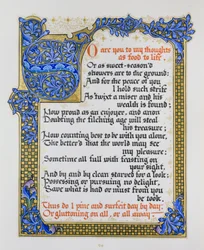 So are you to my thoughts
as food to life,
Or as sweet-season'd
showers are to the ground:
And for the peace of you
I hold such strife
As 'twixt a miser and his
wealth is found;
Now proud as an enjoyer, and anon
Doubting the filching age will steal
his treasure;
Now counting best to be with you alone,
Then better'd that the world may see
my pleasure;
Sometime all full with feasting on
your sight,
And by and by clean starved for a look;
Possessing or pursuing no delight,
Save what is had or must from you
be took.
Thus do I pine and surfeit day by day,
Or gluttoning on all, or all away: